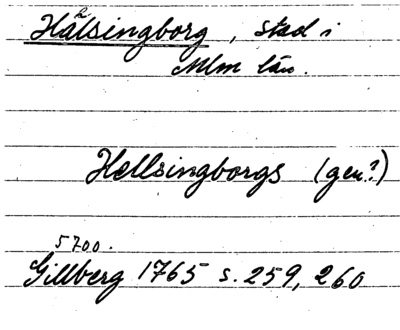 Hälsingborg, stad i
Mlm län.
Hellsingborgs (gen?)
5700.
Gillberg 1765 s. 259, 260